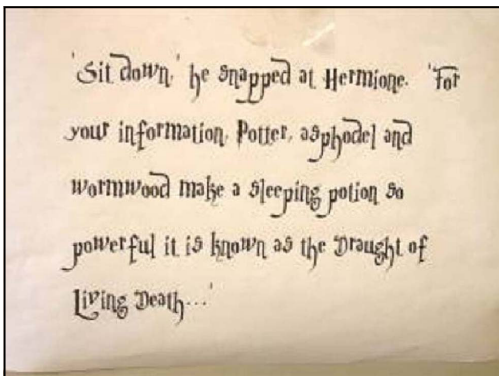 'Sit down,' he snapped at Hermione. 'For
your information, Potter, asphodel and
wormwood make a sleeping potion so
powerful it is known as the Draught of
Living Death...'